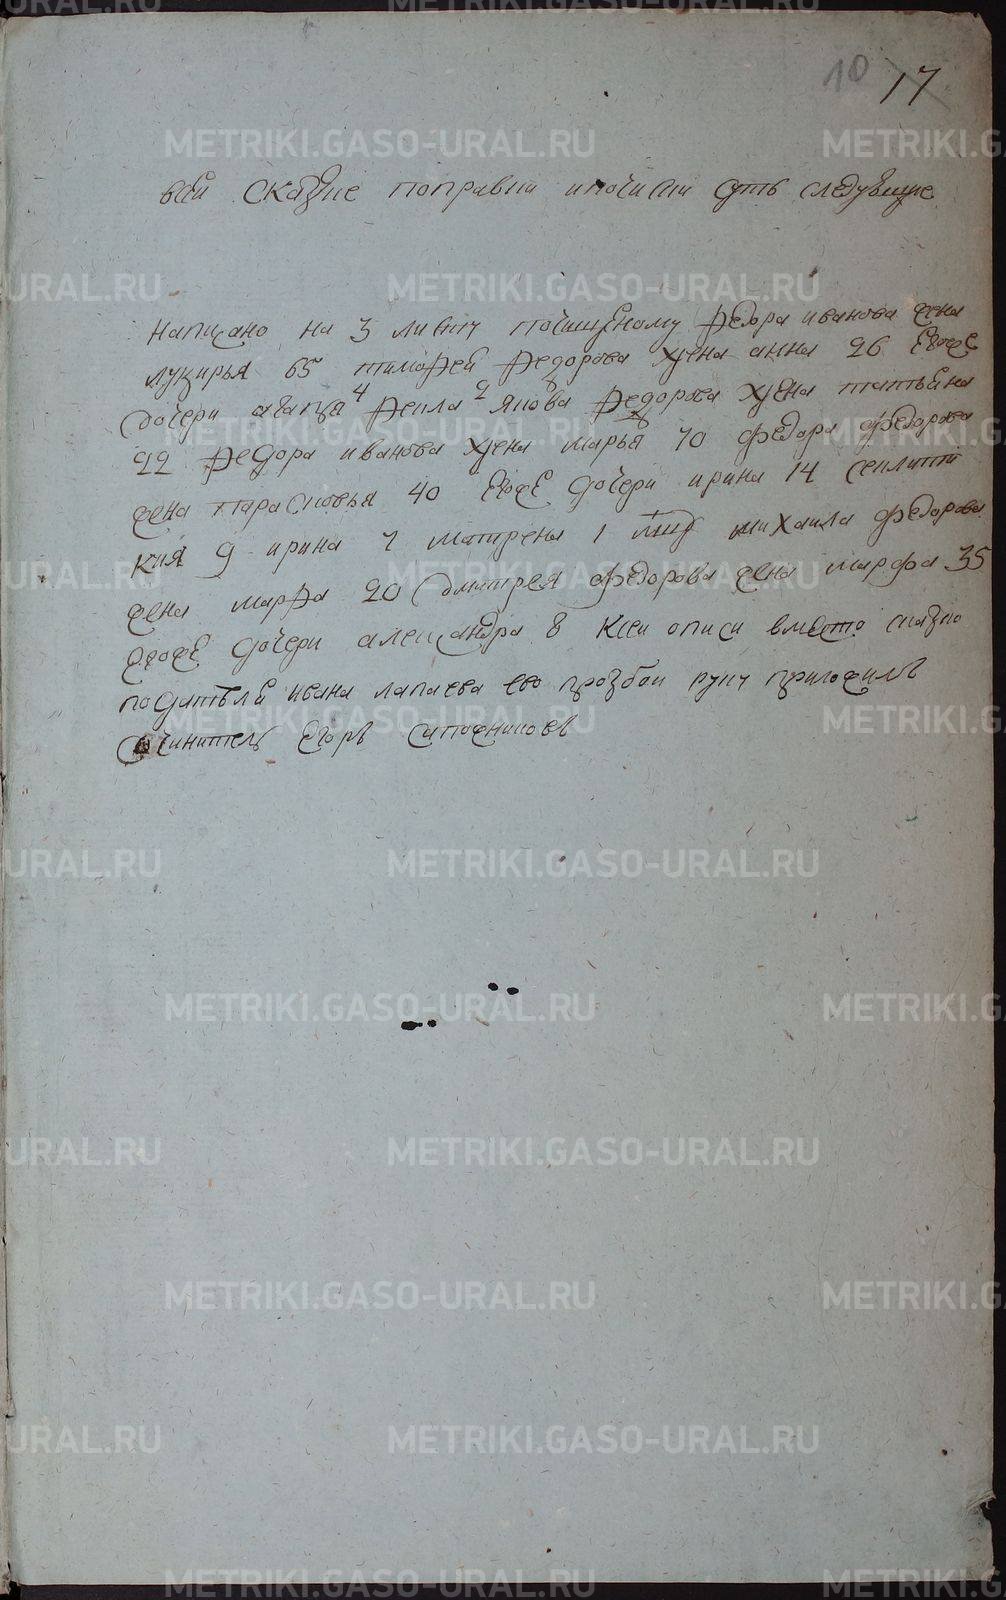 10 17
всей сказке поправки и почистки суть следующие
написано на 3 листу почищеному федора иванова жена
лукирья 65 тимофей федорова жена анна 26 евоже
дочери агапья 4 фекла 2 якова федорова жена татьяна
22 федора иванова жена марья 70 федора федорова
жена парасковья 40 евоже дочери ирина 14 секлити
кия 9 ирина 7 матрена 1 михаила федорова
жена марфа 20 дмитрея федорова жена марфа 35
евоже дочери александра 8 к сей описи вместо сказко
подателя ивана лапаева ево прозбои руку приложилъ
сочинитель егоръ сапожниковъ
METRIKI.GASO-URAL.RU